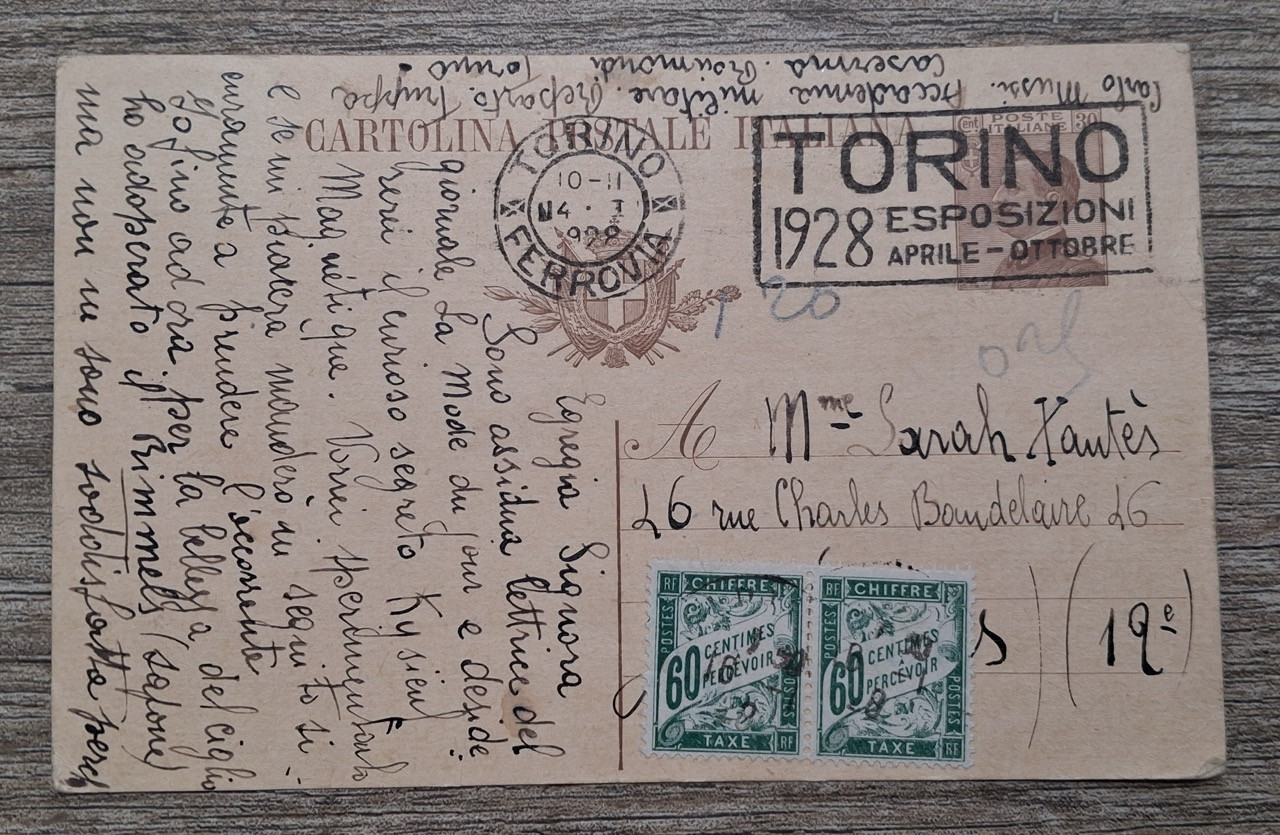 Carlo Mussi. Accademia militare. Reparto. Truppa
Caserma. Torino
CARTOLINA POSTALE ITALIANA
cent POSTE ITALIANE 30
TORINO
FERROVIA
10-11
4 · I
1928
TORINO
1928 ESPOSIZIONI
APRILE - OTTOBRE
1 20
A Mme Sarah Xantès
26 rue Charles Baudelaire 26
s (12e)
RF CHIFFRE
POSTES
60 CENTIMES
À
PERCEVOIR
POSTES
TAXE RF
RF CHIFFRE
POSTES
60 CENTIMES
À
PERCEVOIR
POSTES
TAXE RF
Egregia Signora
Sono assidua lettrice del
giornale La Mode du jour e deside
rerei il curioso segreto Kysieul
Magnétique. Vorrei sperimentarlo
e se mi piacerà manderò in seguito si-
curamente a prendere l'occorrente
Io fino ad ora per la bellezza del ciglio
ho adoperato il Rimmels (sapone)
ma non ne sono soddisfatta perch